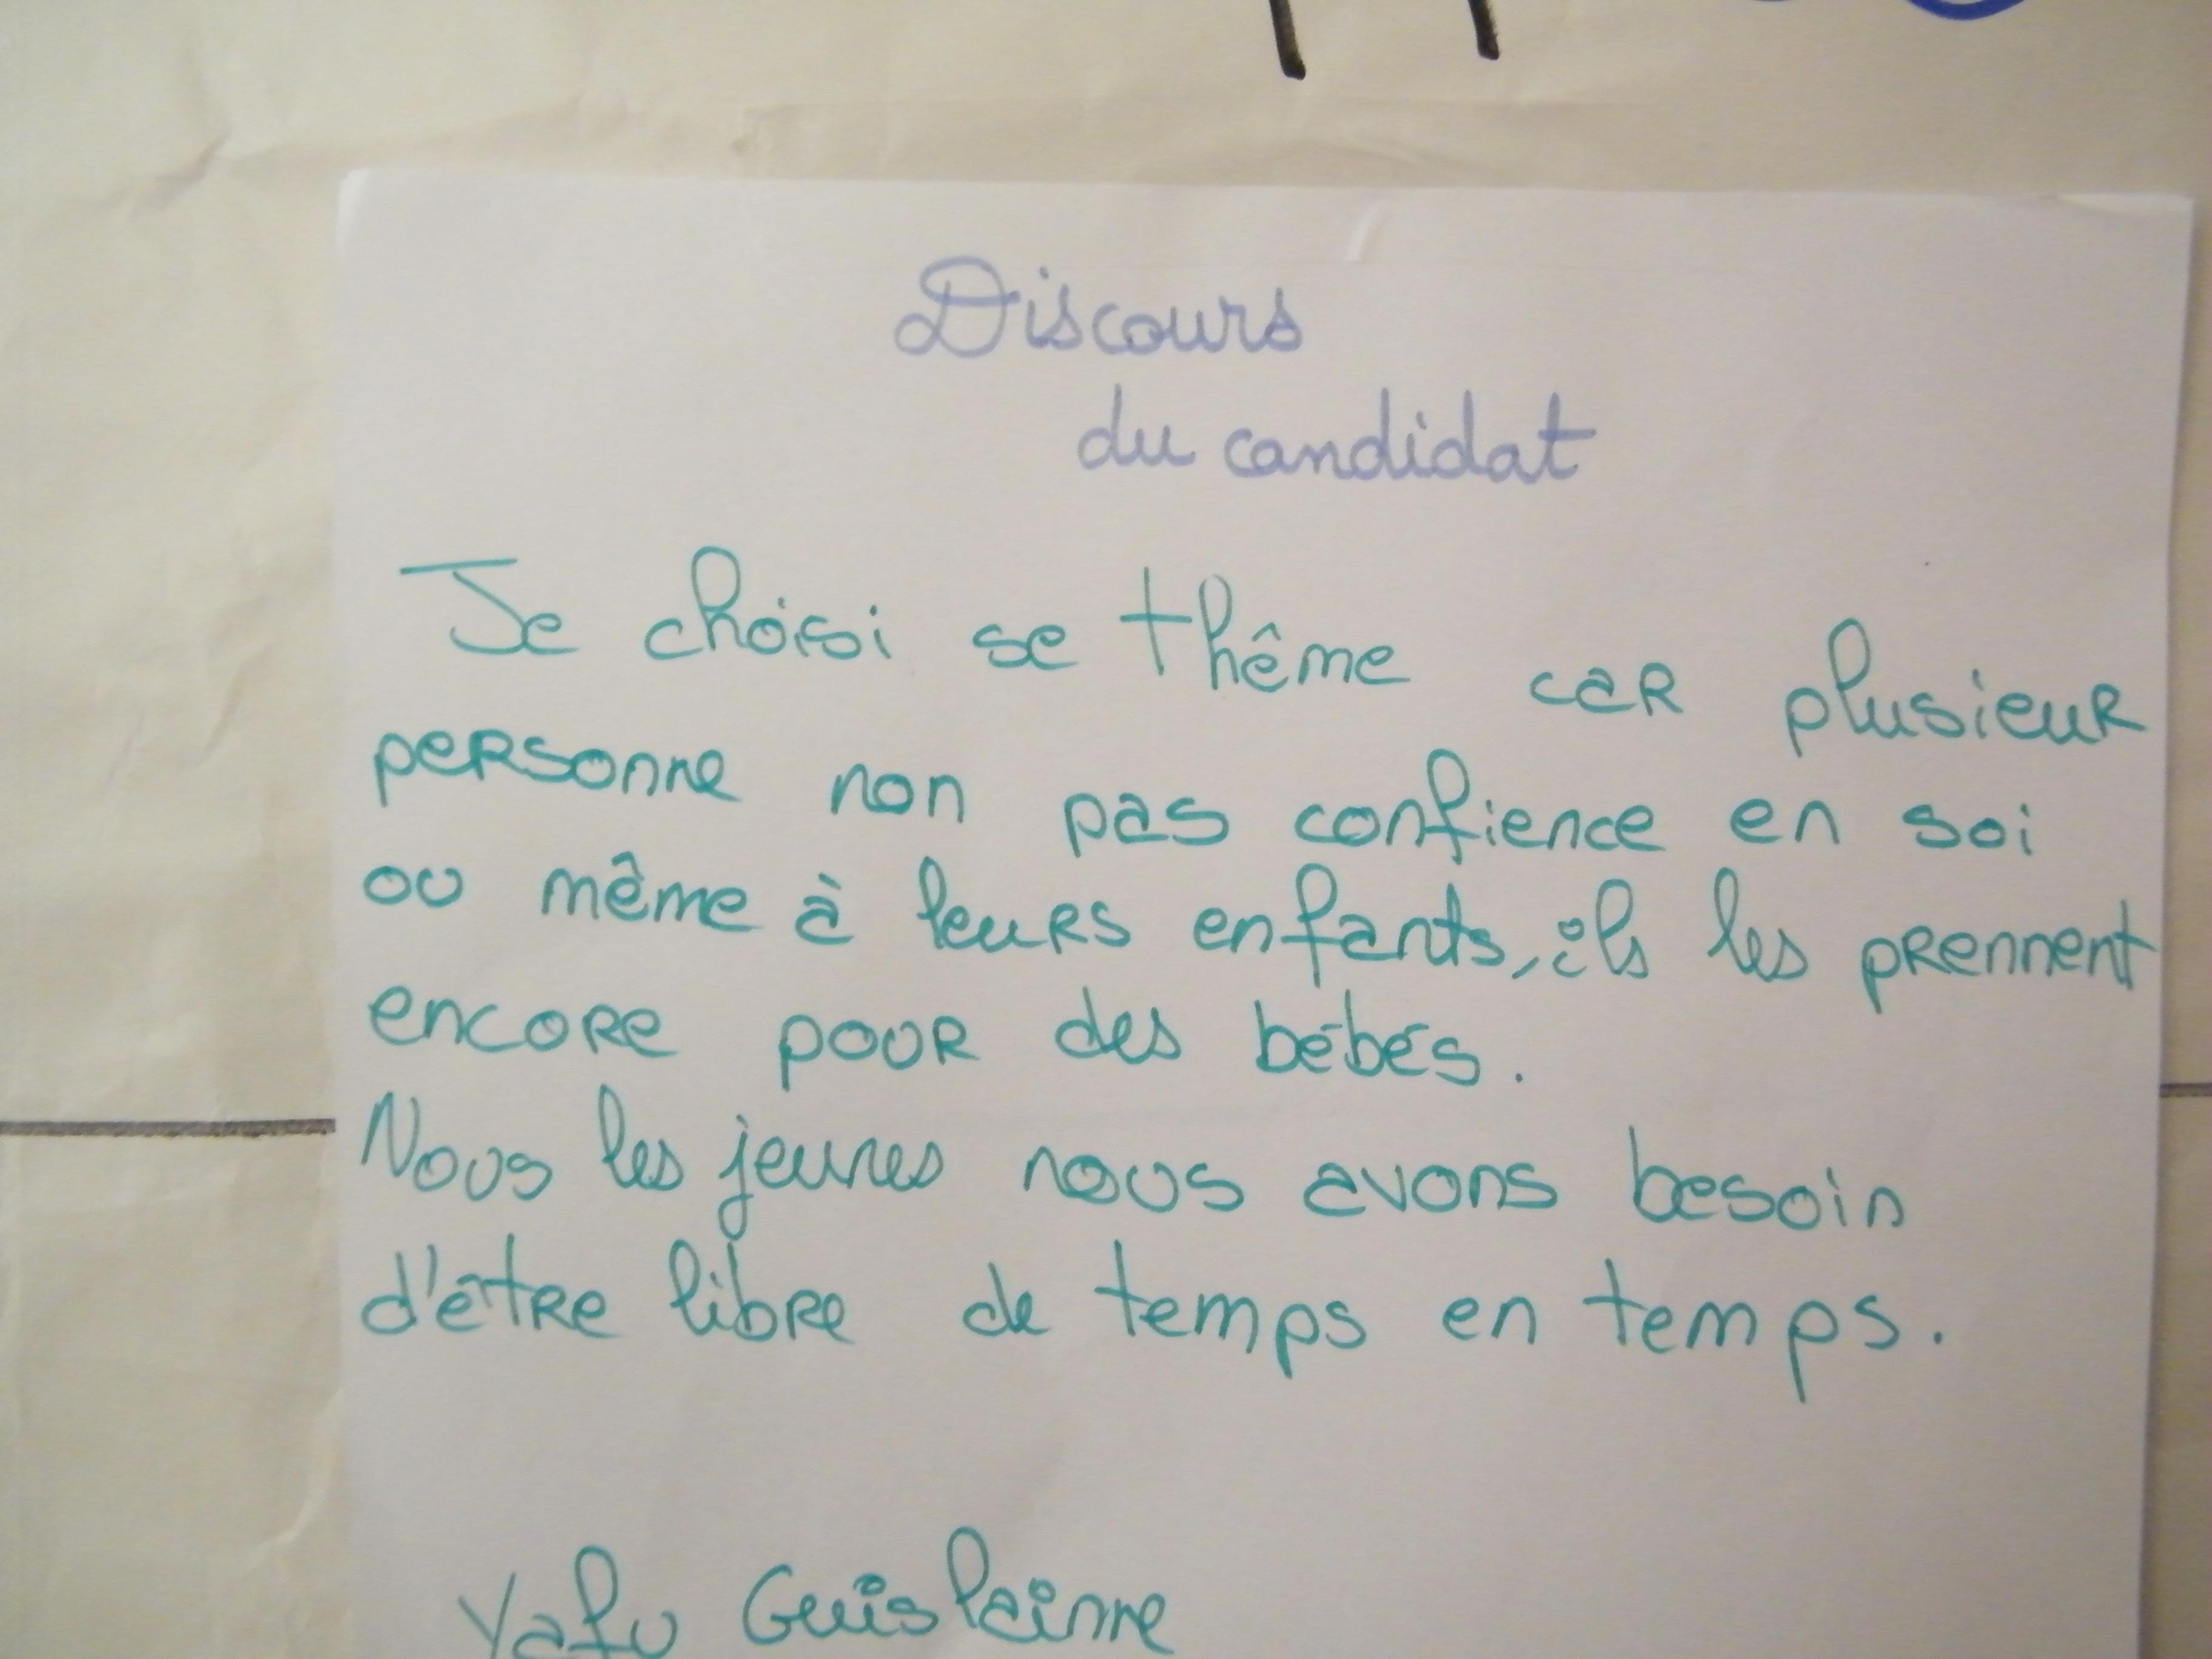 Discours
du candidat
Je choisi se thême car plusieur
personne non pas confience en soi
ou même à leurs enfants, ils les prennent
encore pour des bébés.
Nous les jeunes nous avons besoin
d'être libre de temps en temps.
Yafu Guislainne